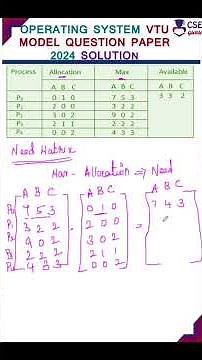 OPERATING SYSTEM VTU
MODEL QUESTION PAPER
2024 SOLUTION
CSE
Process Allocation Max Available
A B C A B C A B C
P₀ 0 1 0 7 5 3 3 3 2
P₁ 2 0 0 3 2 2
P₂ 3 0 2 9 0 2
P₃ 2 1 1 2 2 2
P₄ 0 0 2 4 3 3
Need Matrix
Max - Allocation ⇒ Need
A B C A B C A B C
P₀ 7 5 3 - 0 1 0 = 7 4 3
P₁ 3 2 2 2 0 0
P₂ 9 0 2 3 0 2
P₃ 2 2 2 2 1 1
P₄ 4 3 3 0 0 2